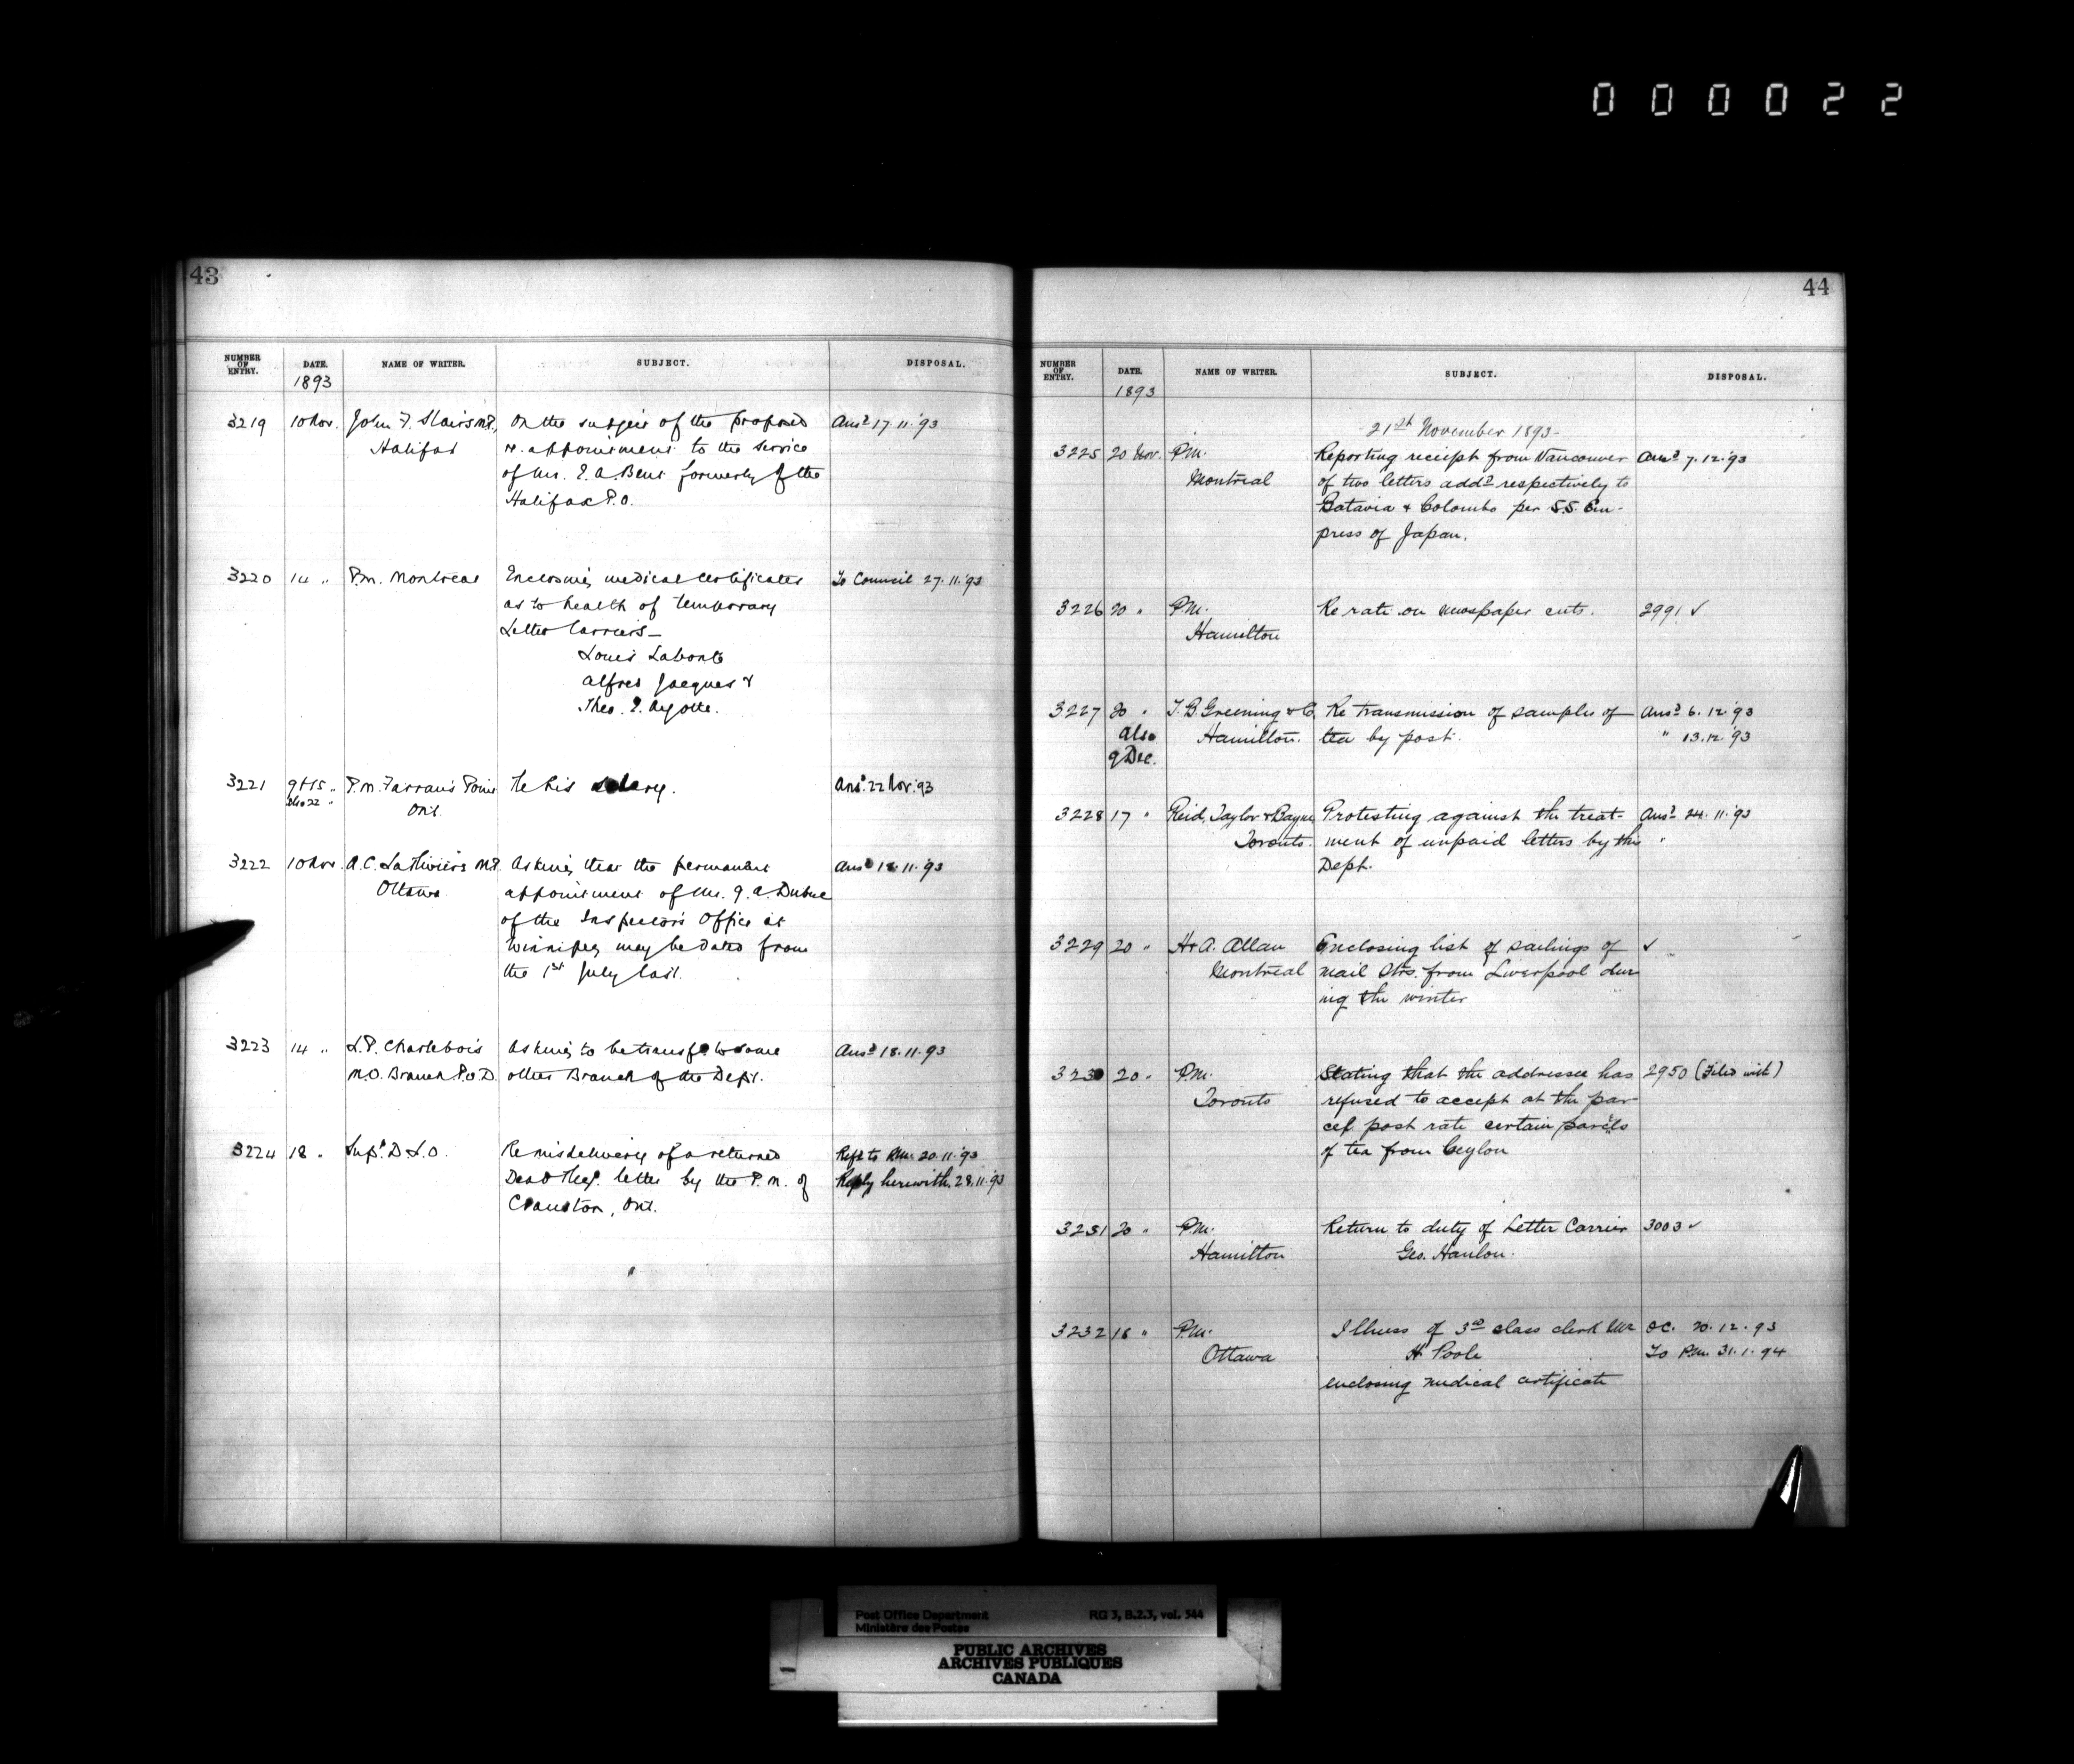 000022
43
NUMBER OF ENTRY. DATE. NAME OF WRITER. SUBJECT. DISPOSAL.
1893
3219 10 Nov. John F. Stairs M.P., On the subject of the proposed Ansd 17.11.'93
Halifax re-appointment to the service
of Mr. E. A. Bent formerly of the
Halifax P.O.
3220 14 " P.M. Montreal Enclosing medical certificates To Council 27.11.'93
as to health of temporary
Letter Carriers—
Louis Labonté
Alfred Jacques &
Theo. E. Ayotte.
3221 9 & 15 " P.M. Farran's Point Re his salary. Ansd. 22 Nov. '93
also 22 " Ont.
3222 10 Nov. A.C. LaRivière M.P. Asking that the permanent Ansd 18.11.'93
Ottawa appointment of Mr. J. A. Dubuc
of the Inspector's Office at
Winnipeg may be dated from
the 1st July last.
3223 14 " L.P. Charlebois Asking to be transfd to some Ansd 18.11.93
M.O. Branch P.O.D. other Branch of the Dept.
3224 18 " Supt. D.L.O. Re misdelivery of a returned Refd to P.M. 20.11.'93
Dead letter by the P.M. of Reply herewith. 28.11.'93
Cranston, Ont.
44
NUMBER OF ENTRY. DATE. NAME OF WRITER. SUBJECT. DISPOSAL.
1893
21st November 1893-
3225 20 Nov. P.M. Reporting receipt from Vancouver Ansd 7.12.'93
Montreal of two letters addd respectively to
Batavia & Colombo per S.S. Em-
press of Japan.
3226 20 " P.M. Re rate on newspaper cuts. 2991 ✓
Hamilton
3227 20 " T.B. Greening & Co Re transmission of samples of Ansd 6.12.'93
also Hamilton. tea by post. " 13.12.'93
9 Dec.
3228 17 " Reid, Taylor & Bayne Protesting against the treat- Ansd 24.11.'93
Toronto. ment of unpaid letters by this "
Dept.
3229 20 " H & A. Allan Enclosing list of sailings of ✓
Montreal mail Strs. from Liverpool dur
ing the winter
3230 20 " P.M. Stating that the addressee has 2950 (Filed with)
Toronto refused to accept at the par
cel post rate certain parcels
of tea from Ceylon
3231 20 " P.M. Return to duty of Letter Carrier 3003 ✓
Hamilton Geo. Hanlon.
3232 18 " P.M. Illness of 3rd class clerk Mr O.C. 20.12.93
Ottawa H Poole To P.M. 31.1.94
enclosing medical certificate
Post Office Department RG 3, B.2.3, vol. 544
Ministère des Postes
PUBLIC ARCHIVES
ARCHIVES PUBLIQUES
CANADA